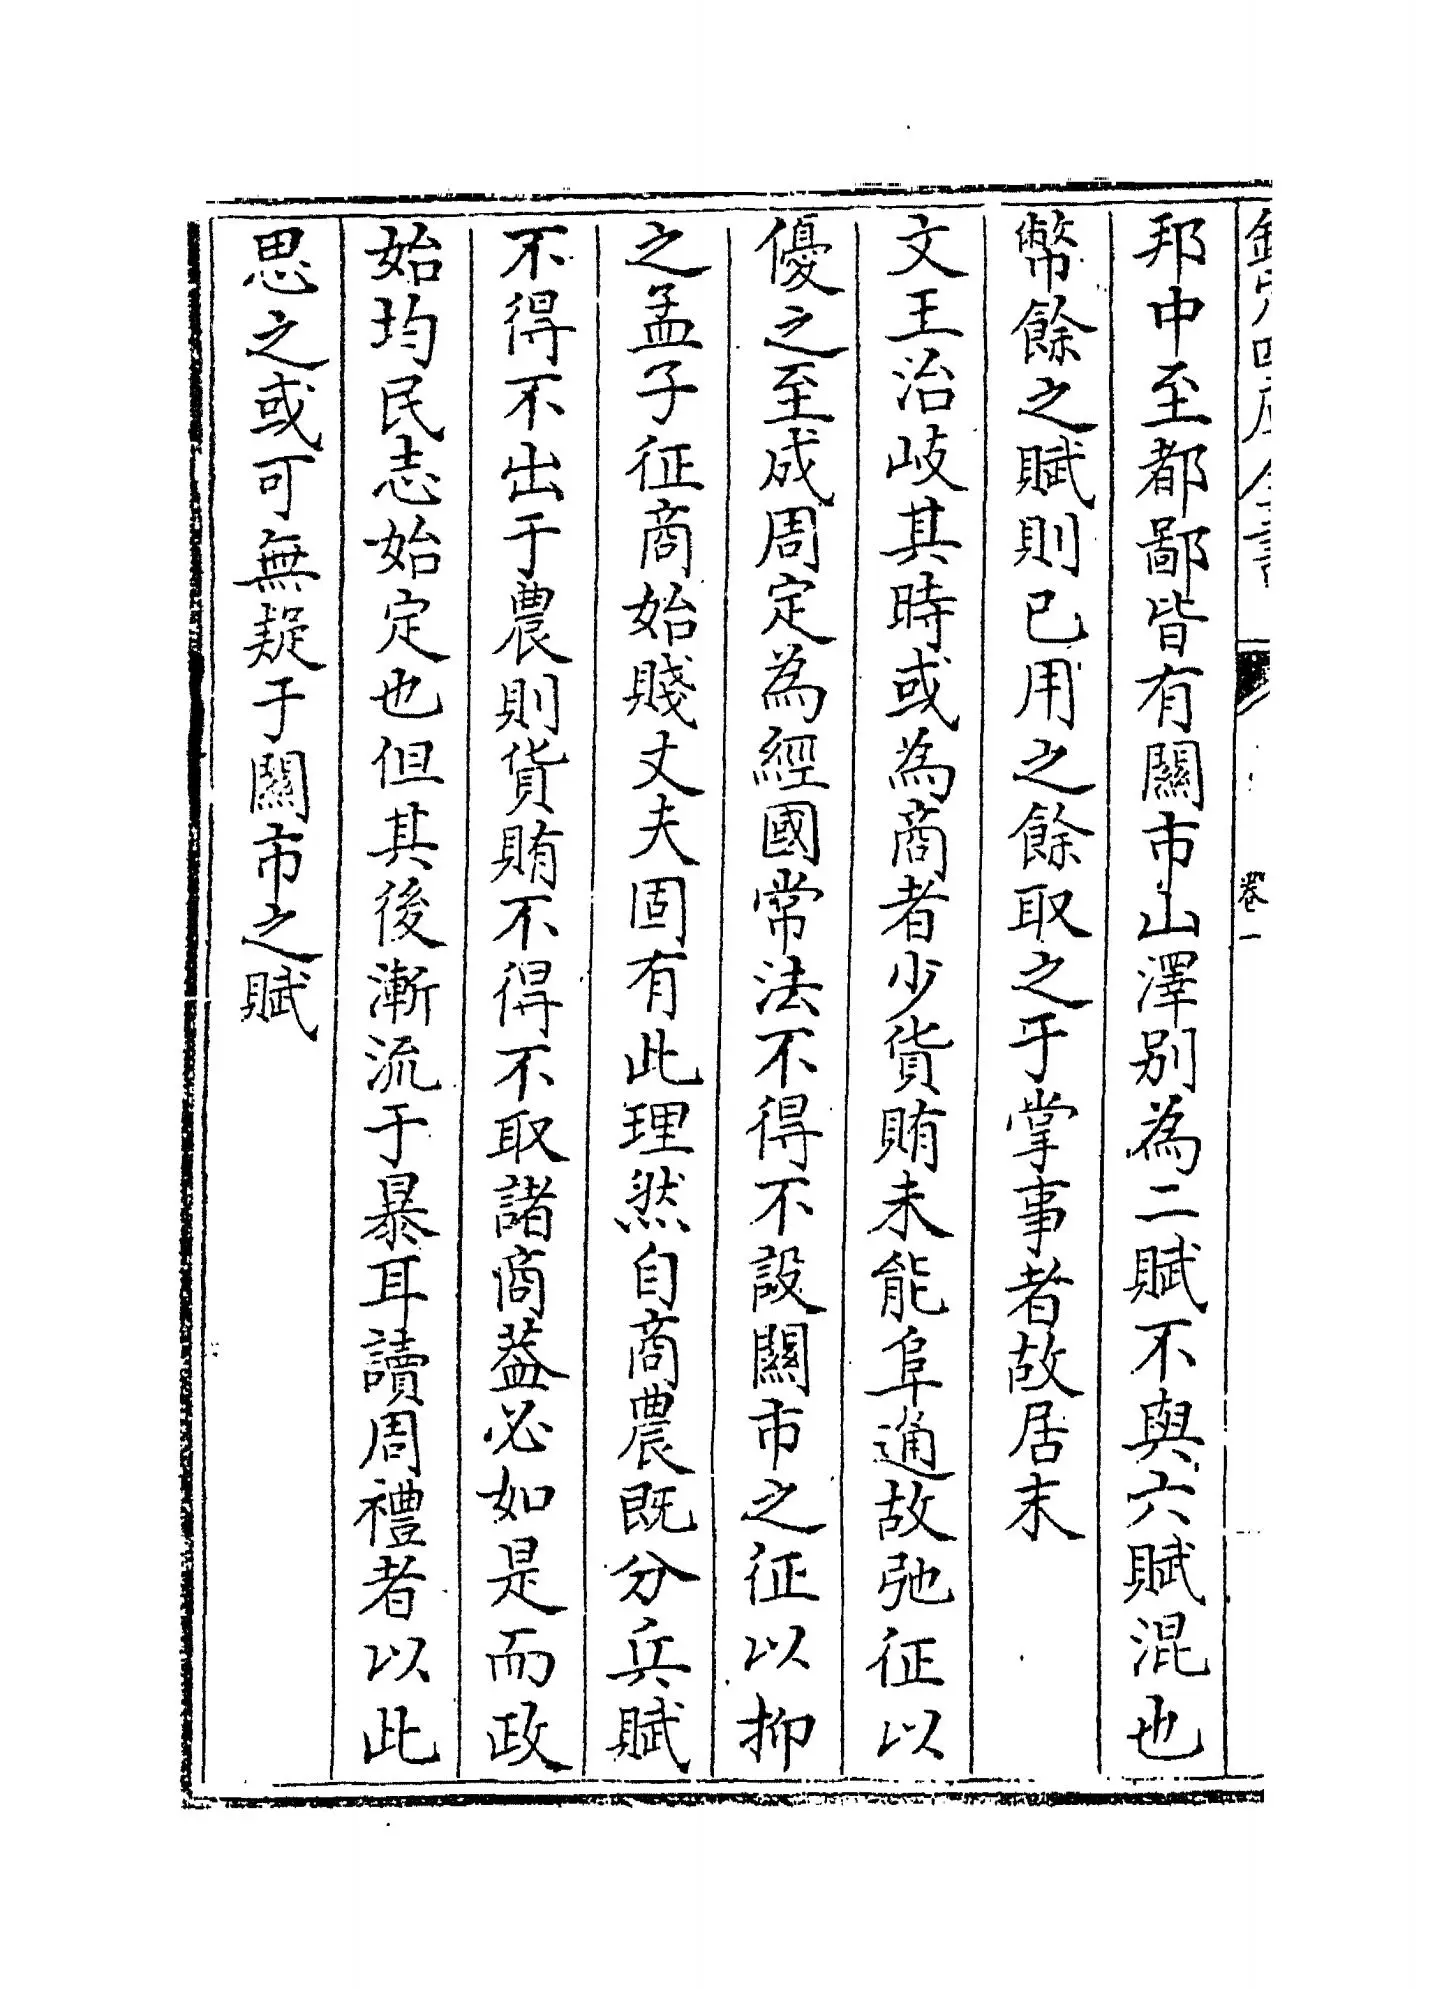 欽定四庫全書
卷一
邦中至都鄙皆有關市山澤别為二賦不與六賦混也
幣餘之賦則已用之餘取之于掌事者故居末
文王治岐其時或為商者少貨賄未能阜通故弛征以
優之至成周定為經國常法不得不設關市之征以抑
之孟子征商始賤丈夫固有此理然自商農既分兵賦
不得不出于農則貨賄不得不取諸商葢必如是而政
始均民志始定也但其後漸流于暴耳讀周禮者以此
思之或可無疑于關市之賦